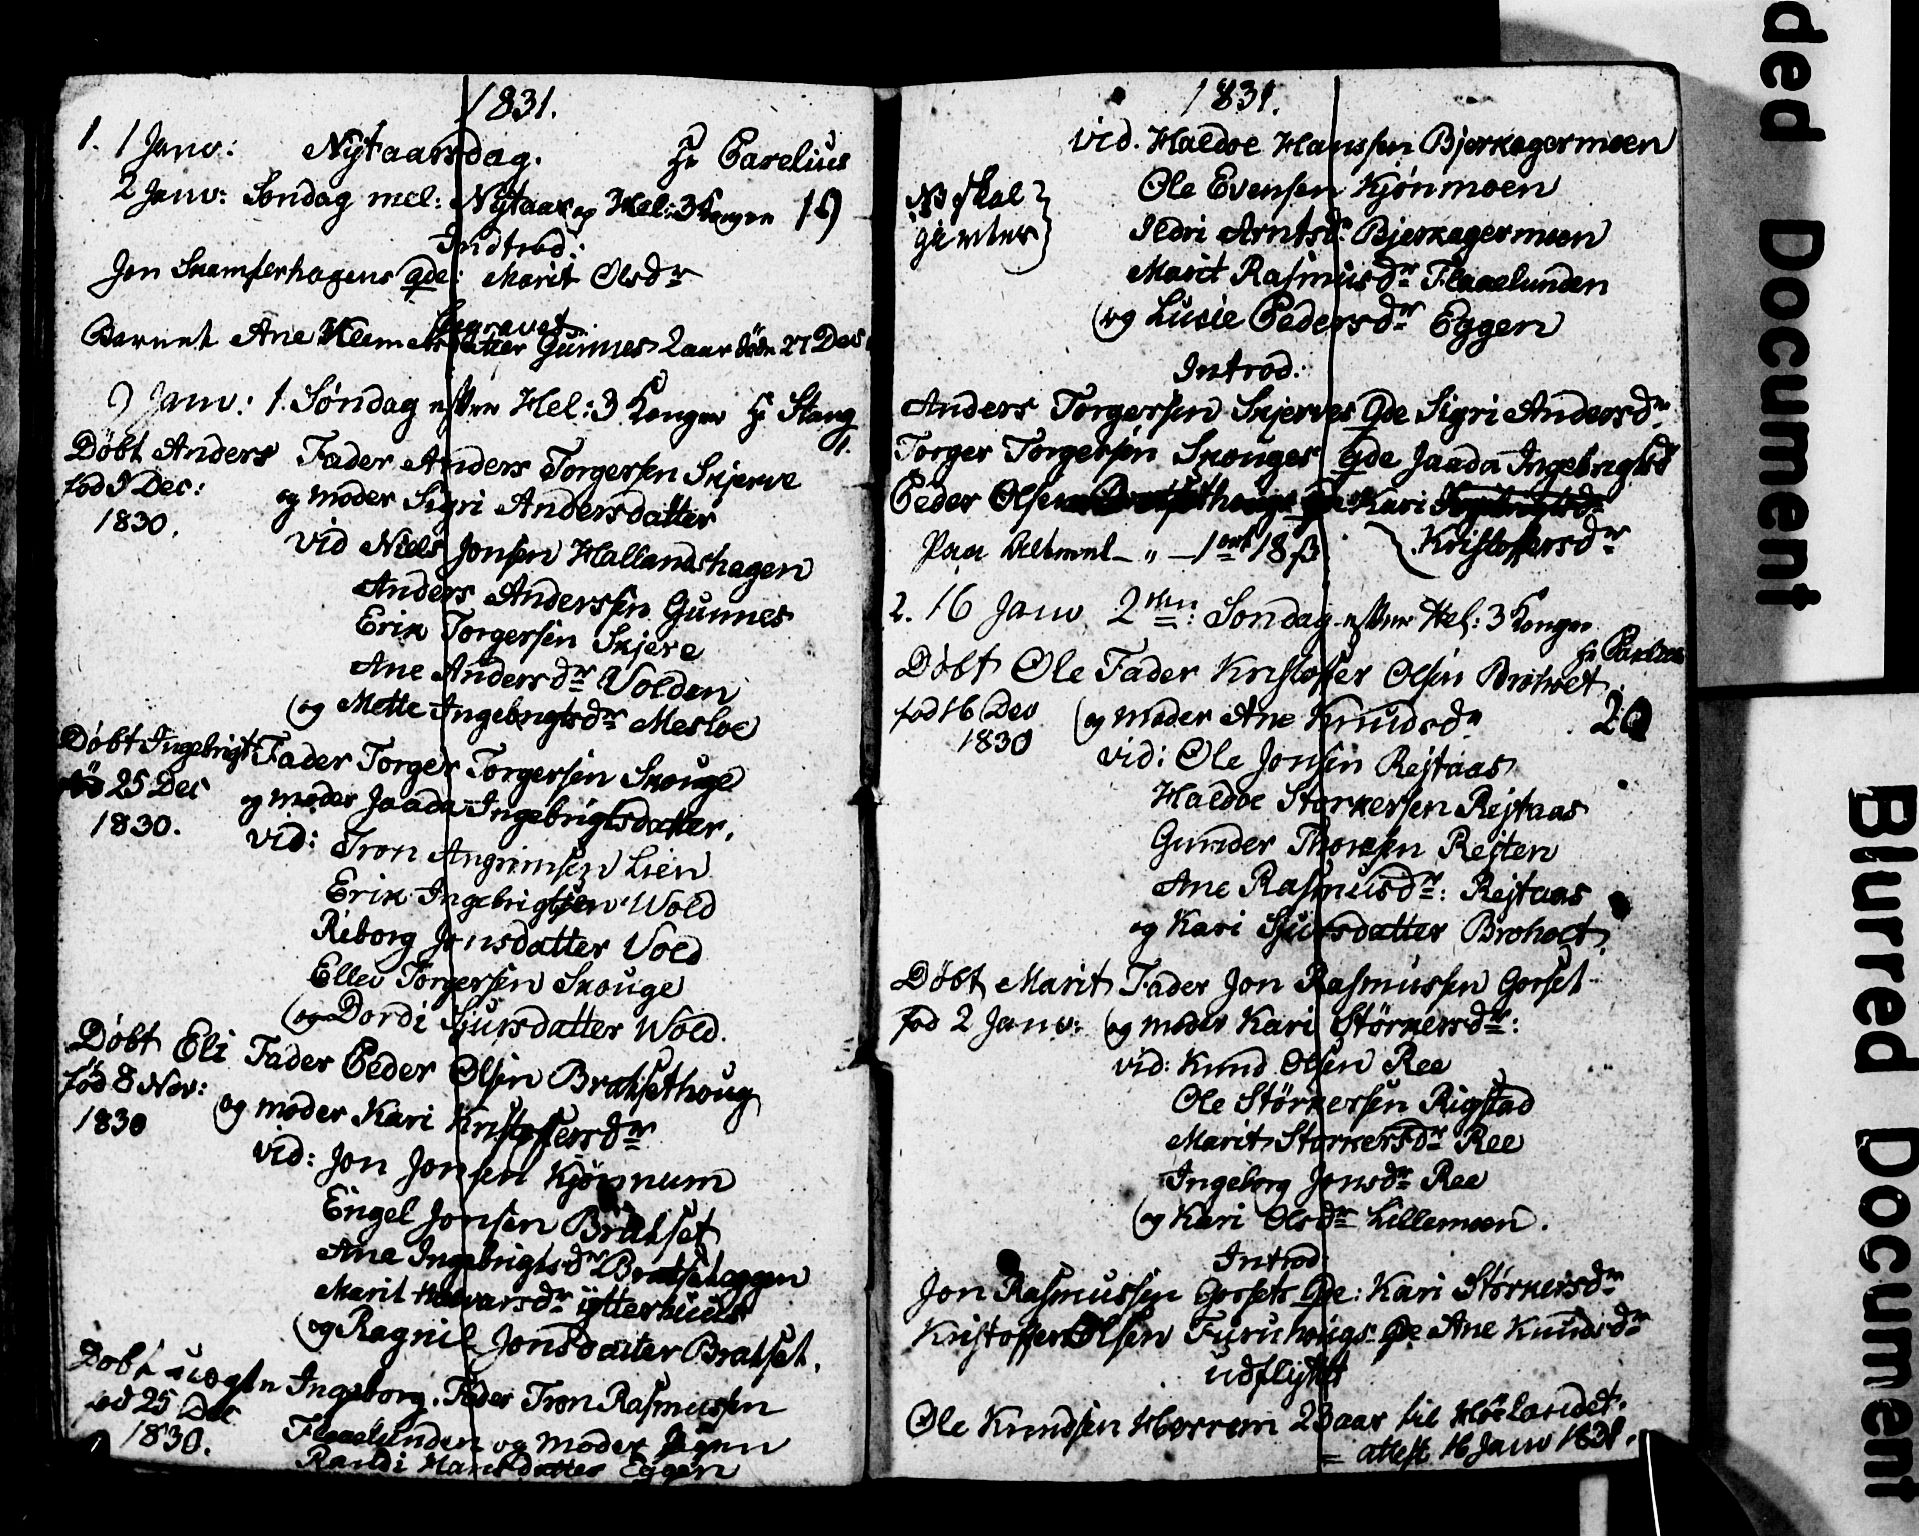 1831.
1. 1 Janv: Nytaarsdag. Hr Carelius
2 Janv: Søndag mel: Nytaar og Hel: 3 Konger
Introd:
Jon Skamferhagens qde: Marit Olsdr
Begravet
Barnet Ane Gunnes 2 aar døde 27 Des
9 Janv: 1. Søndag efter Hel: 3 Konger Hr Stang
Døbt Anders Fader Anders Torgersen Skjerve
fød 9 Dec: og moder Sigri Andersdatter
1830.
vid Niels Jonsen Hallandshagen
Anders Andersen Gunnes
Erik Torgersen Skjere
Ane Andersdr Volden
(og Mette Ingebrigtsdr Mesloe
Døbt Ingebrigt Fader Torger Torgersen Skouge
25 Dec og moder Jaada Ingebrigtsdatter.
1830.
vid: Tron Angrimsen Lien
Erik Ingebrigtsen Wold
Reborg Jonsdatter Vold
Ellev Torgersen Skouge
(og Dordi Sjursdatter Wold.
Døbt Eli Fader Peder Olsen Bratsethoug
fød 8 Nov: og moder Kari Kristoffersdr
1830
vid: Jon Jonsen Kjønnum
Engel Jonsen Bratset
Ane Ingebrigtsdr Bratsetoggen
Marit Halvarsdr ytterhuus
(og Ragnil Jonsdatter Bratset.
Døbt uægte Ingeborg. Fader Tron Rasmussen
fød 25 Dec Flaaelunden og moder
1830.
Randi Hansdatter Eggen
1831.
vid. Haldoe Hanssen Bjerkagermoen
Ole Evensen Kjønmoen
NB skal
gimter
Ildri Arntsdr Bjerkagermoen
Marit Rasmusdr Flaaelunden
(og Lusie Pedersdr Eggen
Introd:
Anders Torgersen Skjerves Qde Sigri Andersdr
Torger Torgersen Skouges Qde Jaada Ingebrigtsd
Peder Olsen Kari
Paa Alteret - " - 1 ort 18 ß Kristoffersdr
2. 16 Janv 2den: Søndag efter Hel: 3 Konger
Hr Carelius
Døbt Ole Fader Kristoffer Olsen Broholt
fød 16 Dec (og moder Ane Knudsdr 20
1830
vid: Ole Jonsen Rejtaas
Haldoe Størkersen Rejtaas
Gunder Thoresen Rejten
Ane Rasmusdr: Rejtaas
og Kari Sjursdatter Broholt.
Døbt Marit Fader Jon Rasmussen Gorset
fød 2 Janv: (og moder Kari Størkersdr:
vid: Knud Olsen Ree
Ole Størkersen Rigstad
Marit Størkersdr Ree
Ingeborg Jonsdr Ree
(og Kari Olsdr Lillemoen.
Introd
Jon Rasmussen Gorsets Qde: Kari Størkersdr
Kristoffer Olsen Furuhougs Qde Ane Knudsdr
udflyttet
Ole Knudsen Horrem 23 aar til Hølandet.
= attest 16 Janv 1831.
ded Document
Blurred Document